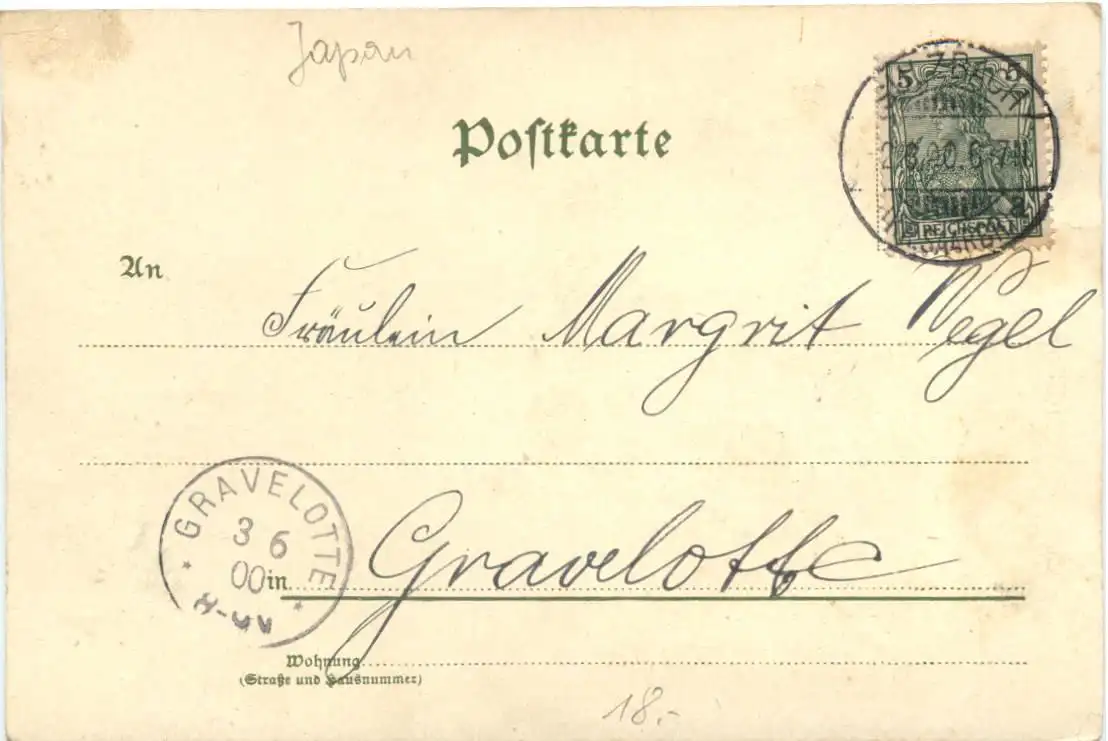 Japan
Postkarte
5 5
SULZBACH
2.6.00.6-7N
a
REICHSPOST
(SAARGBT)
An
Fräulein Margrit Vegel
GRAVELOTTE
3 6
00
in Gravelotte
Wohnung
(Straße und Hausnummer)
18.-